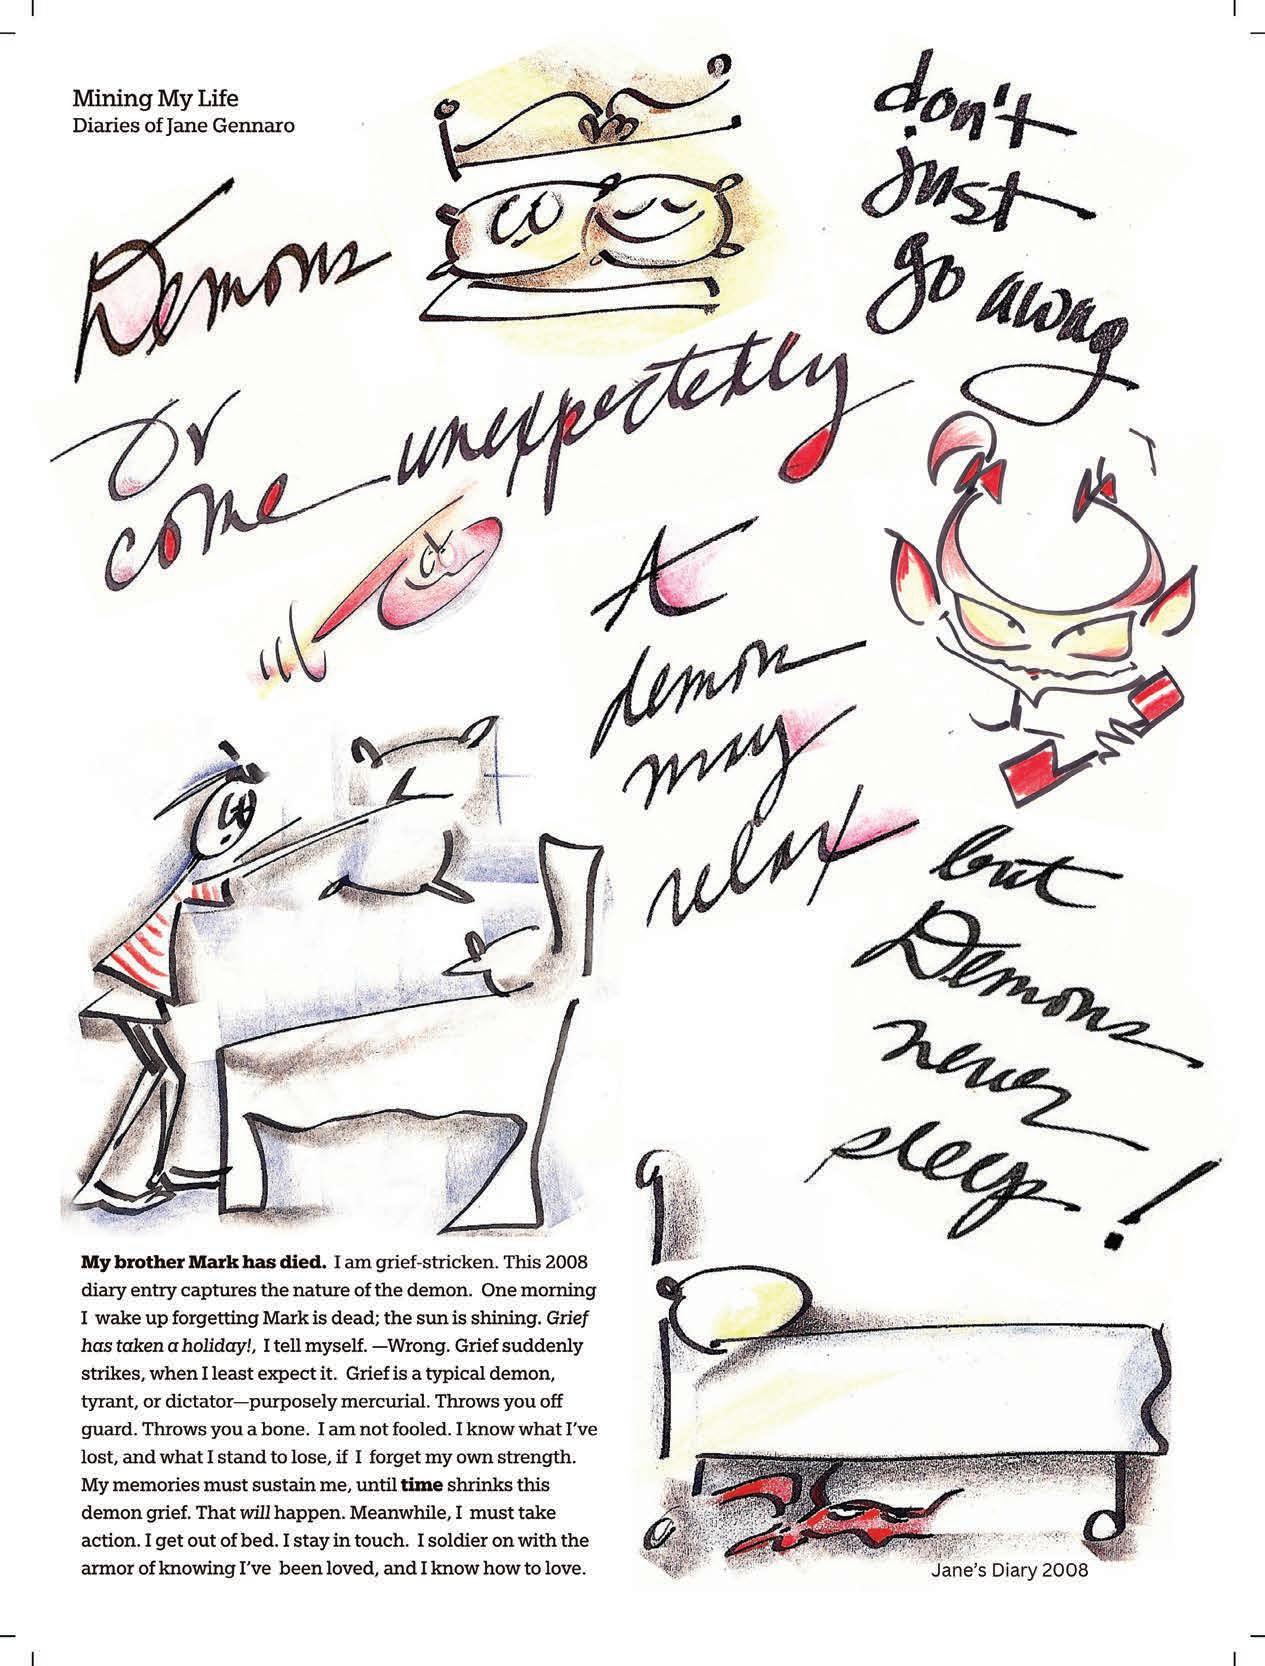 Mining My Life
Diaries of Jane Gennaro
Demons
don't
just
go away
or
come unexpectedly
A
demon
may
relax
but
Demons
never
sleep!
My brother Mark has died. I am grief-stricken. This 2008
diary entry captures the nature of the demon. One morning
I wake up forgetting Mark is dead; the sun is shining. Grief
has taken a holiday!, I tell myself. —Wrong. Grief suddenly
strikes, when I least expect it. Grief is a typical demon,
tyrant, or dictator—purposely mercurial. Throws you off
guard. Throws you a bone. I am not fooled. I know what I've
lost, and what I stand to lose, if I forget my own strength.
My memories must sustain me, until time shrinks this
demon grief. That will happen. Meanwhile, I must take
action. I get out of bed. I stay in touch. I soldier on with the
armor of knowing I've been loved, and I know how to love.
Jane's Diary 2008